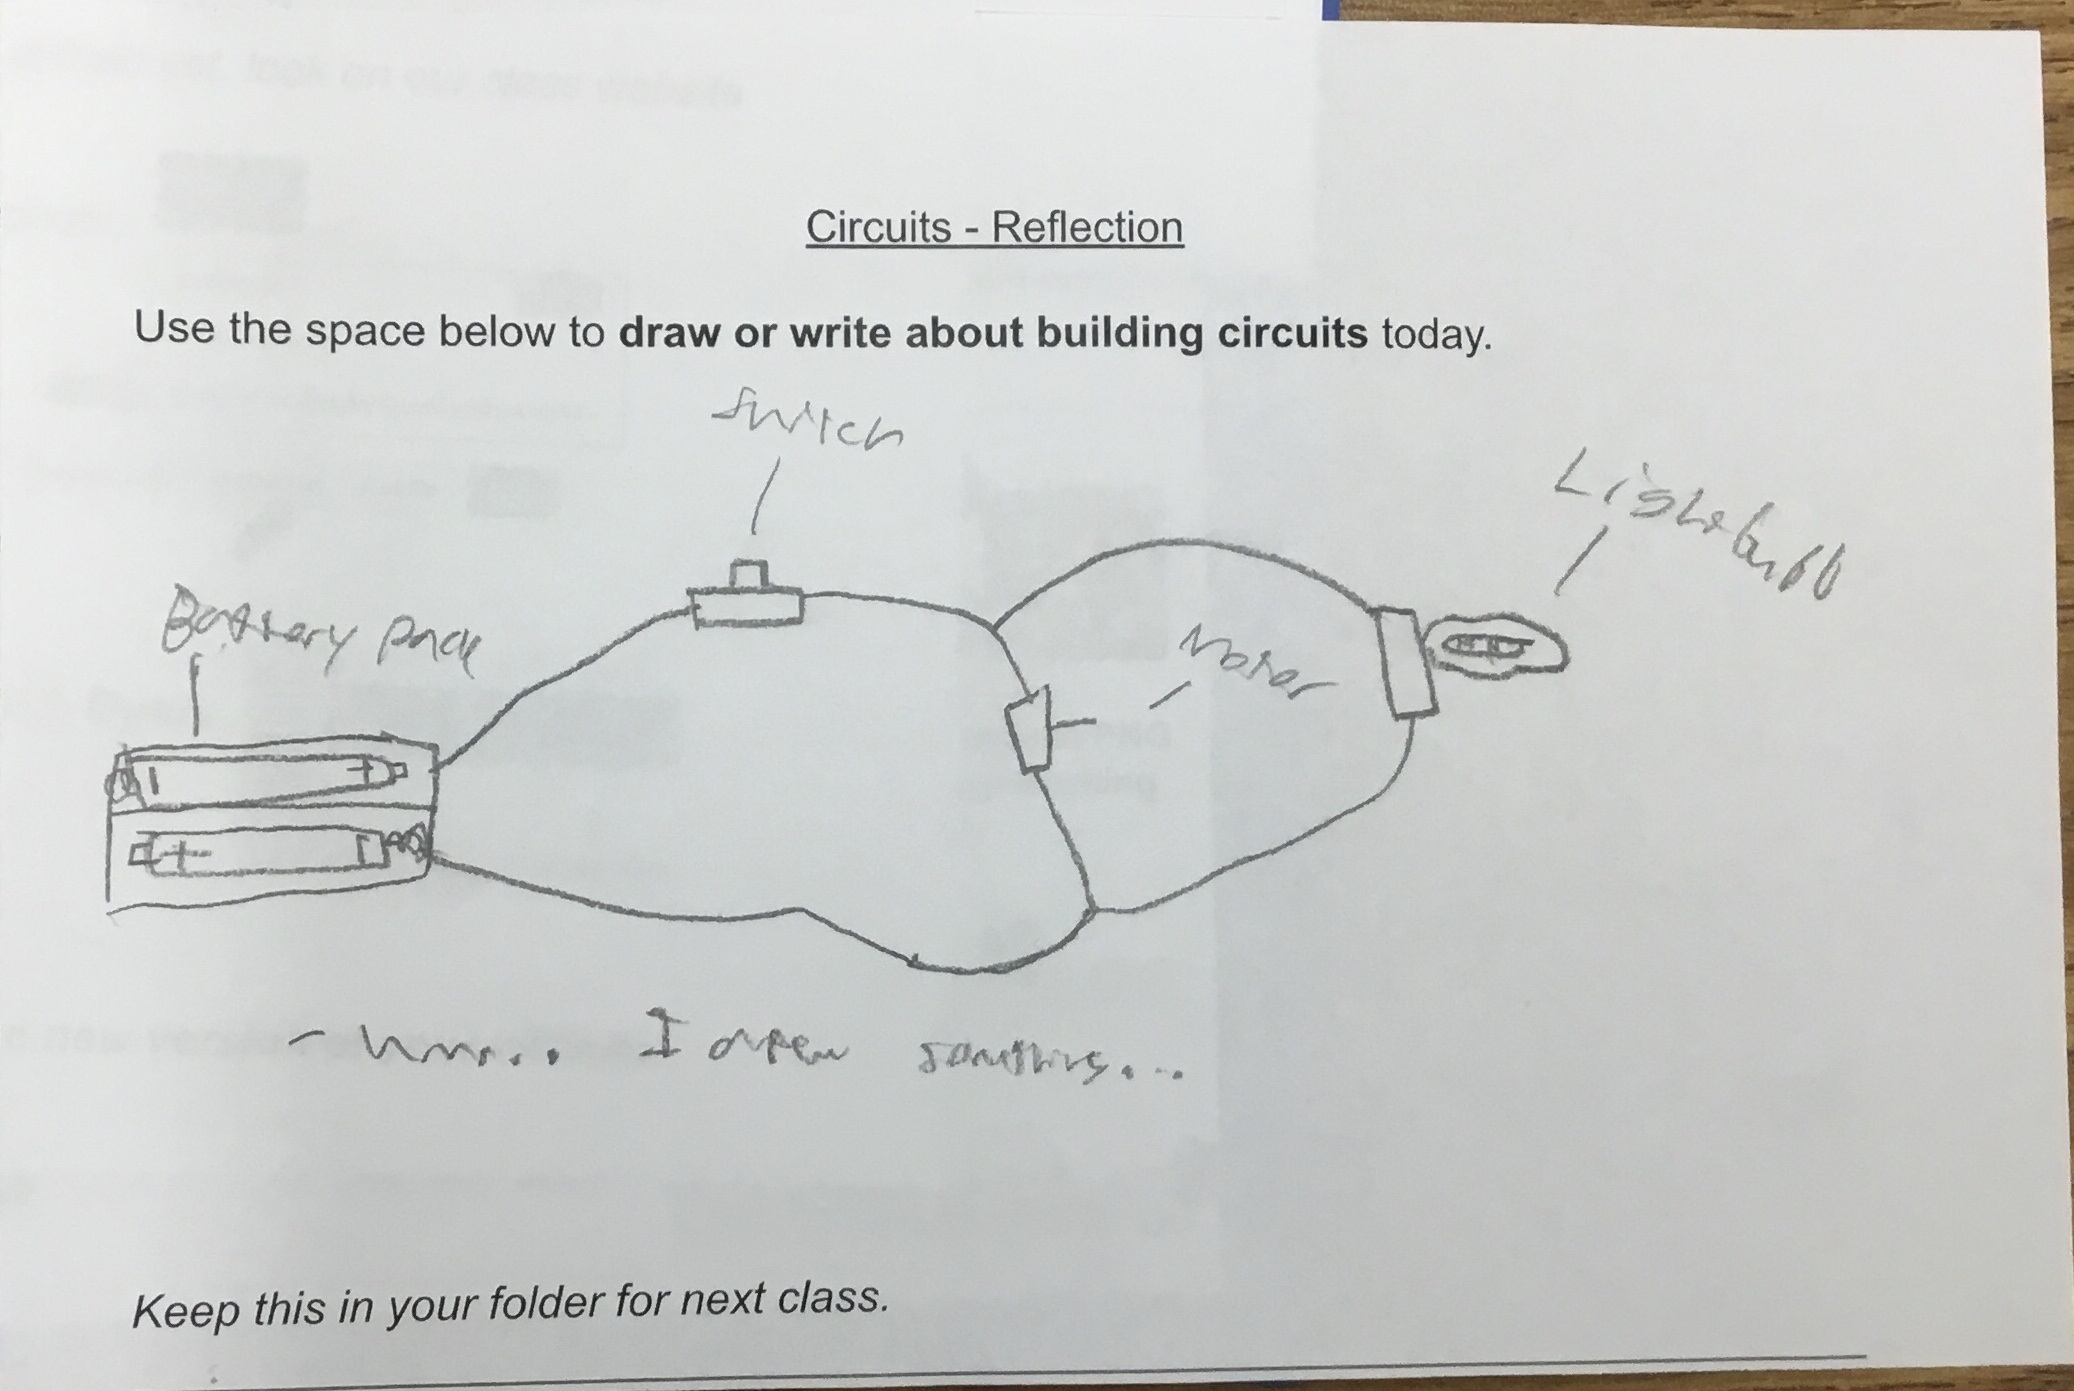 Circuits - Reflection
Use the space below to draw or write about building circuits today.
Switch
Lightbulb
Battery pack
Motor
- hmm... I drew something...
Keep this in your folder for next class.